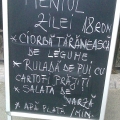 MENIUL
ZILEI 18 RON
* CIORBĂ ȚĂRĂNEASCĂ
DE LEGUME
* RULADĂ DE PUI CU
CARTOFI PRĂJIȚI
* SALATĂ DE
VARZĂ
* APĂ PLATĂ /MIN.